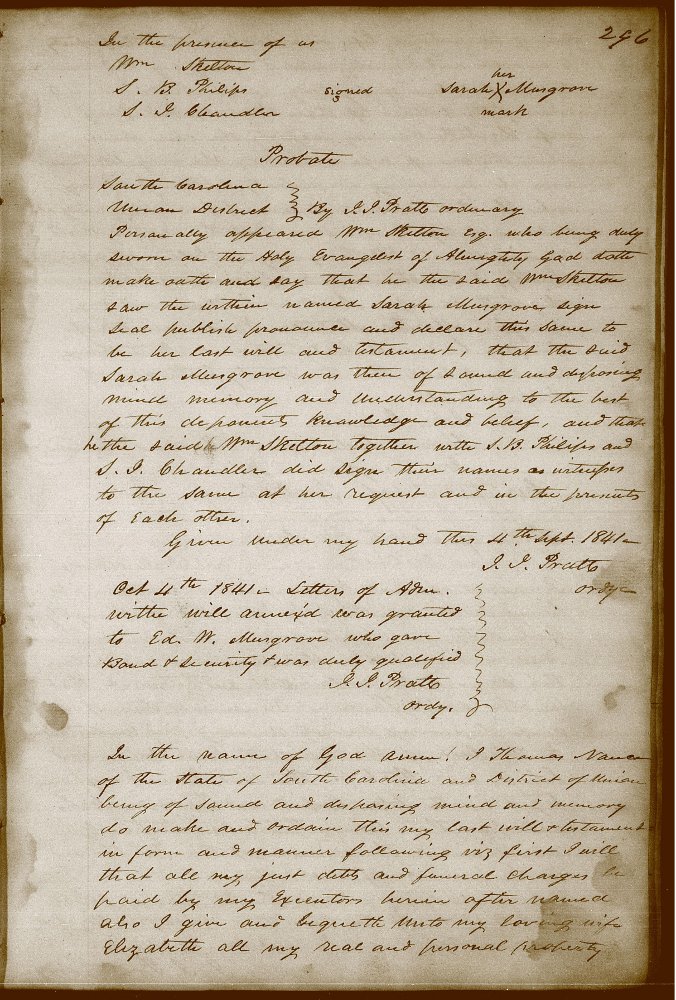 296
In the presence of us
Wm Skelton
S. B. Philips signed Sarah her X mark Musgrove
S. J. Chandler
Probate
South Carolina
Union District } By J. J. Pratt ordinary
Personally appeared Wm Skelton Esq. who being duly
sworn on the Holy Evangelist of Almighty God doth
make oath and say that he the said Wm Skelton
saw the within named Sarah Musgrove sign
seal publish pronounce and declare this same to
be her last will and testament, that the said
Sarah Musgrove was then of sound and disposing
mind memory and understanding to the best
of this deponents knowledge and belief, and that
he the said Wm Skelton together with S. B. Philips and
S. J. Chandler did sign their names as witnesses
to the same at her request and in the presents
of Each other.
Given under my hand this 4th Sept. 1841
J. J. Pratt
ordy
Oct 4th 1841 Letters of Adm.
withe will annex'd was granted
to Ed. W. Musgrove who gave
Bond & Security & was duly qualified
J. J. Pratt
ordy.
In the name of God amen! I Thomas Nance
of the State of South Carolina and District of Union
being of sound and disposing mind and memory
do make and ordain this my last will & testament
in form and manner following viz first I will
that all my just debts and funeral charges be
paid by my Executors herein after named
also I give and bequeth unto my loving wife
Elizabeth all my real and personal property